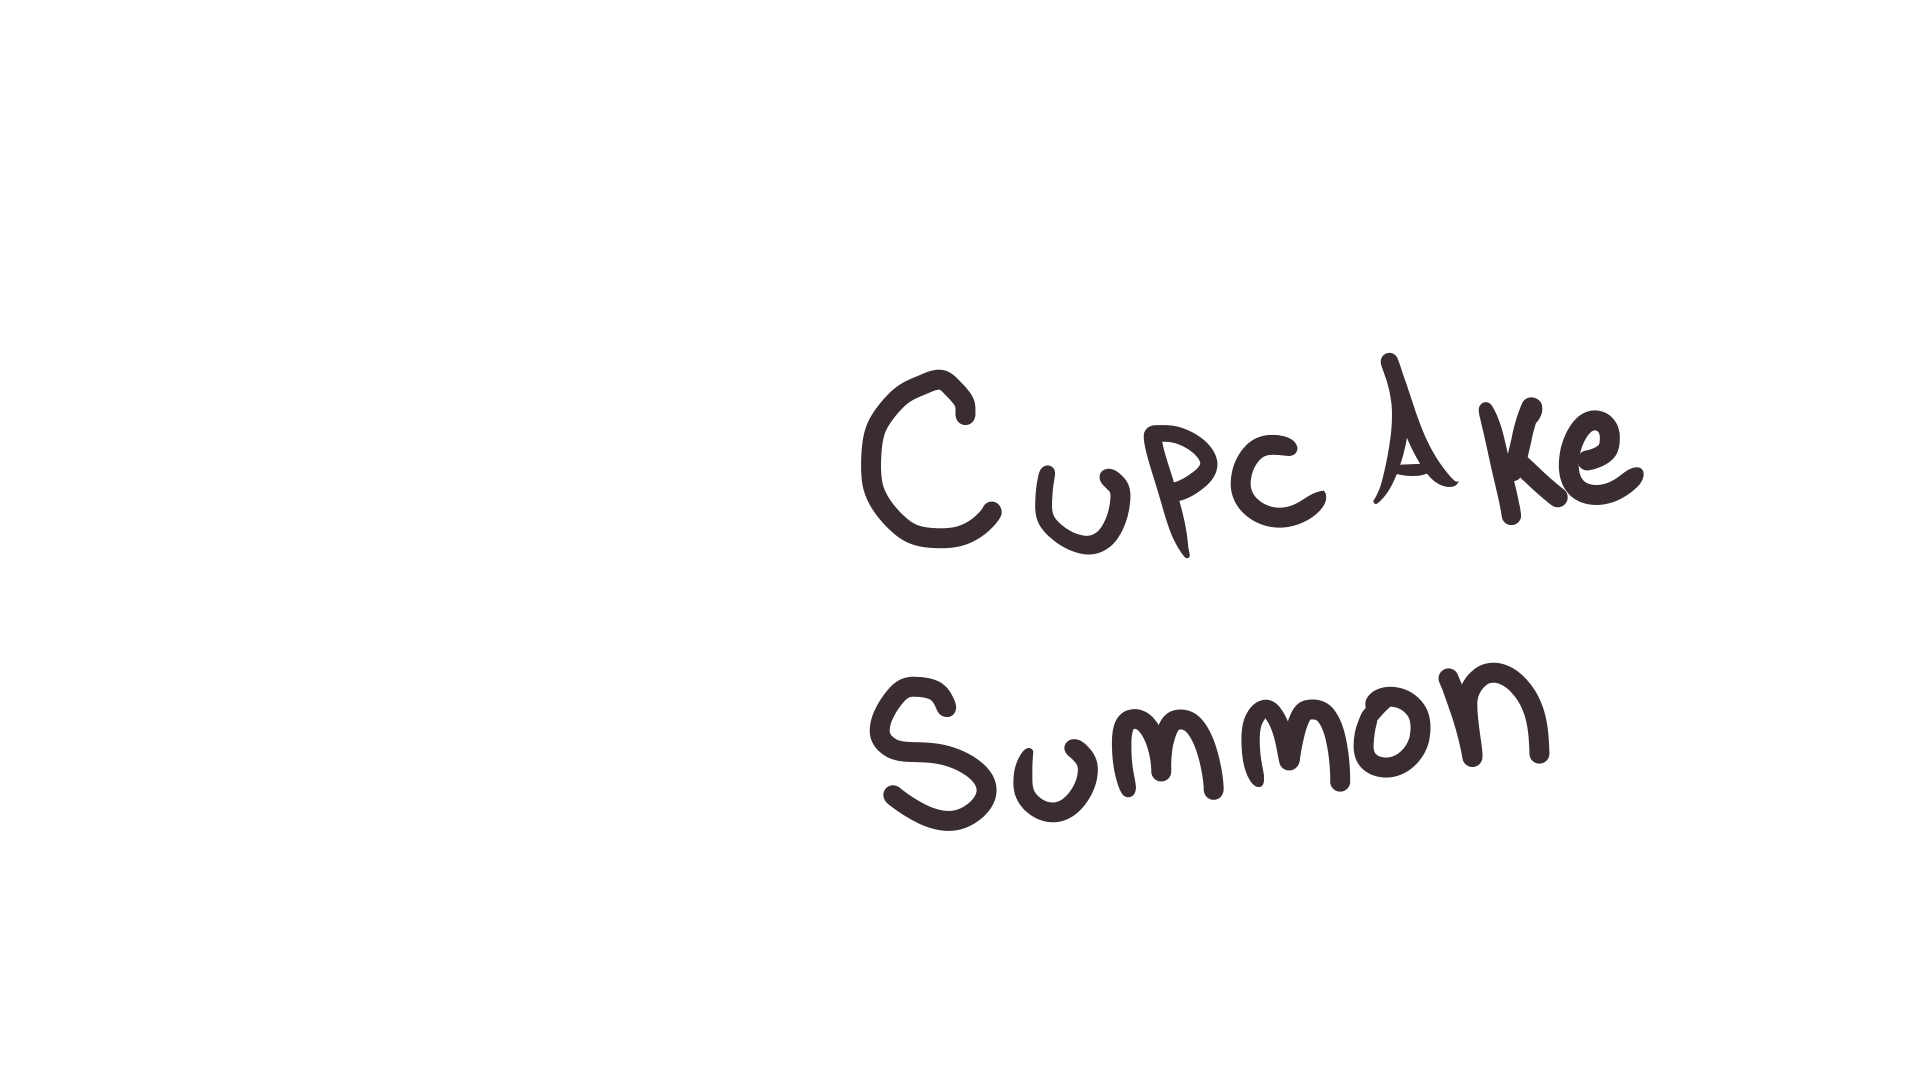 CupcAke
Summon